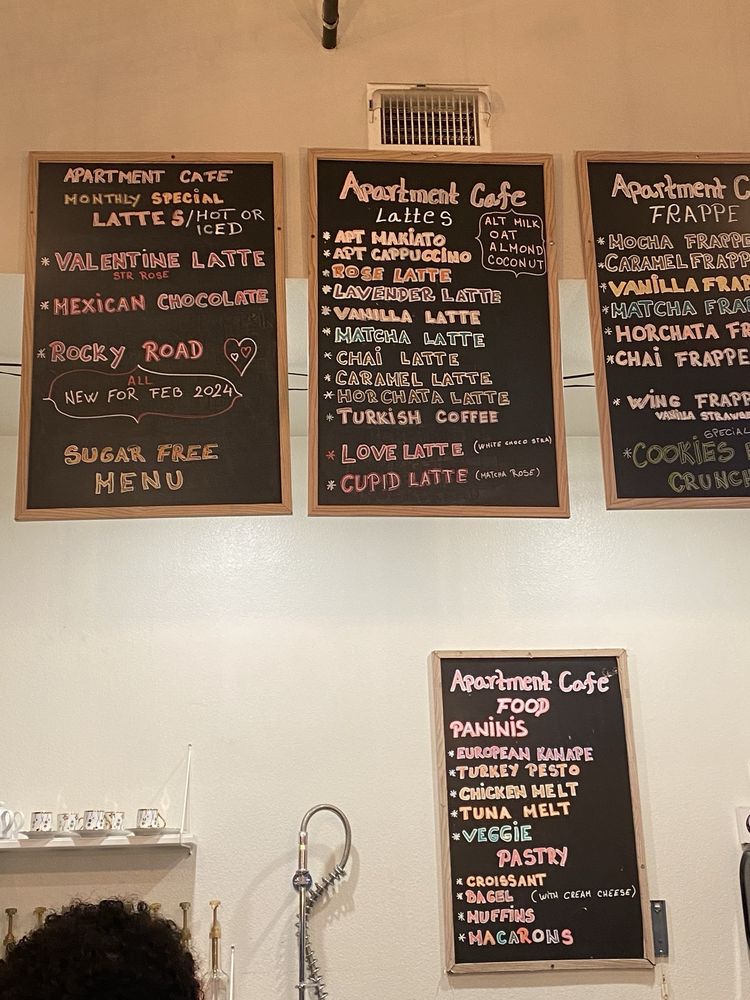 APARTMENT CAFE
MONTHLY SPECIAL
LATTES/HOT OR
ICED
* VALENTINE LATTE
STR ROSE
* MEXICAN CHOCOLATE
* ROCKY ROAD
ALL
NEW FOR FEB 2024
SUGAR FREE
MENU
Apartment Cafe
Lattes
ALT MILK
OAT
ALMOND
COCONUT
* APT MAKIATO
* APT CAPPUCCINO
* ROSE LATTE
* LAVENDER LATTE
* VANILLA LATTE
* MATCHA LATTE
* CHAI LATTE
* CARAMEL LATTE
* HORCHATA LATTE
* TURKISH COFFEE
* LOVE LATTE (WHITE CHOCO STRA)
* CUPID LATTE (MATCHA ROSE)
Apartment C
FRAPPE
* MOCHA FRAPPE
* CARAMEL FRAPP
* VANILLA FRA
* MATCHA FRA
* HORCHATA FR
* CHAI FRAPPE
* WING FRAPP
VANILLA STRAW
SPECIAL
* COOKIES
CRUNCH
Apartment Cafe
FOOD
PANINIS
* EUROPEAN KANAPE
* TURKEY PESTO
* CHICKEN MELT
* TUNA MELT
* VEGGIE
PASTRY
* CROISSANT
* BAGEL (WITH CREAM CHEESE)
* MUFFINS
* MACARONS